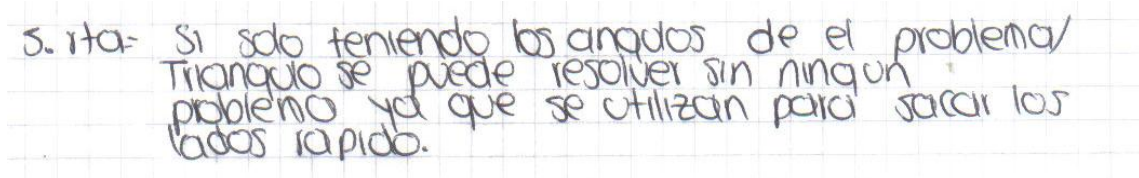 5. rta= Si solo teniendo los angulos de el problema/
Triangulo se puede resolver sin ningun
problemo ya que se utilizan para sacar los
lados rapido.